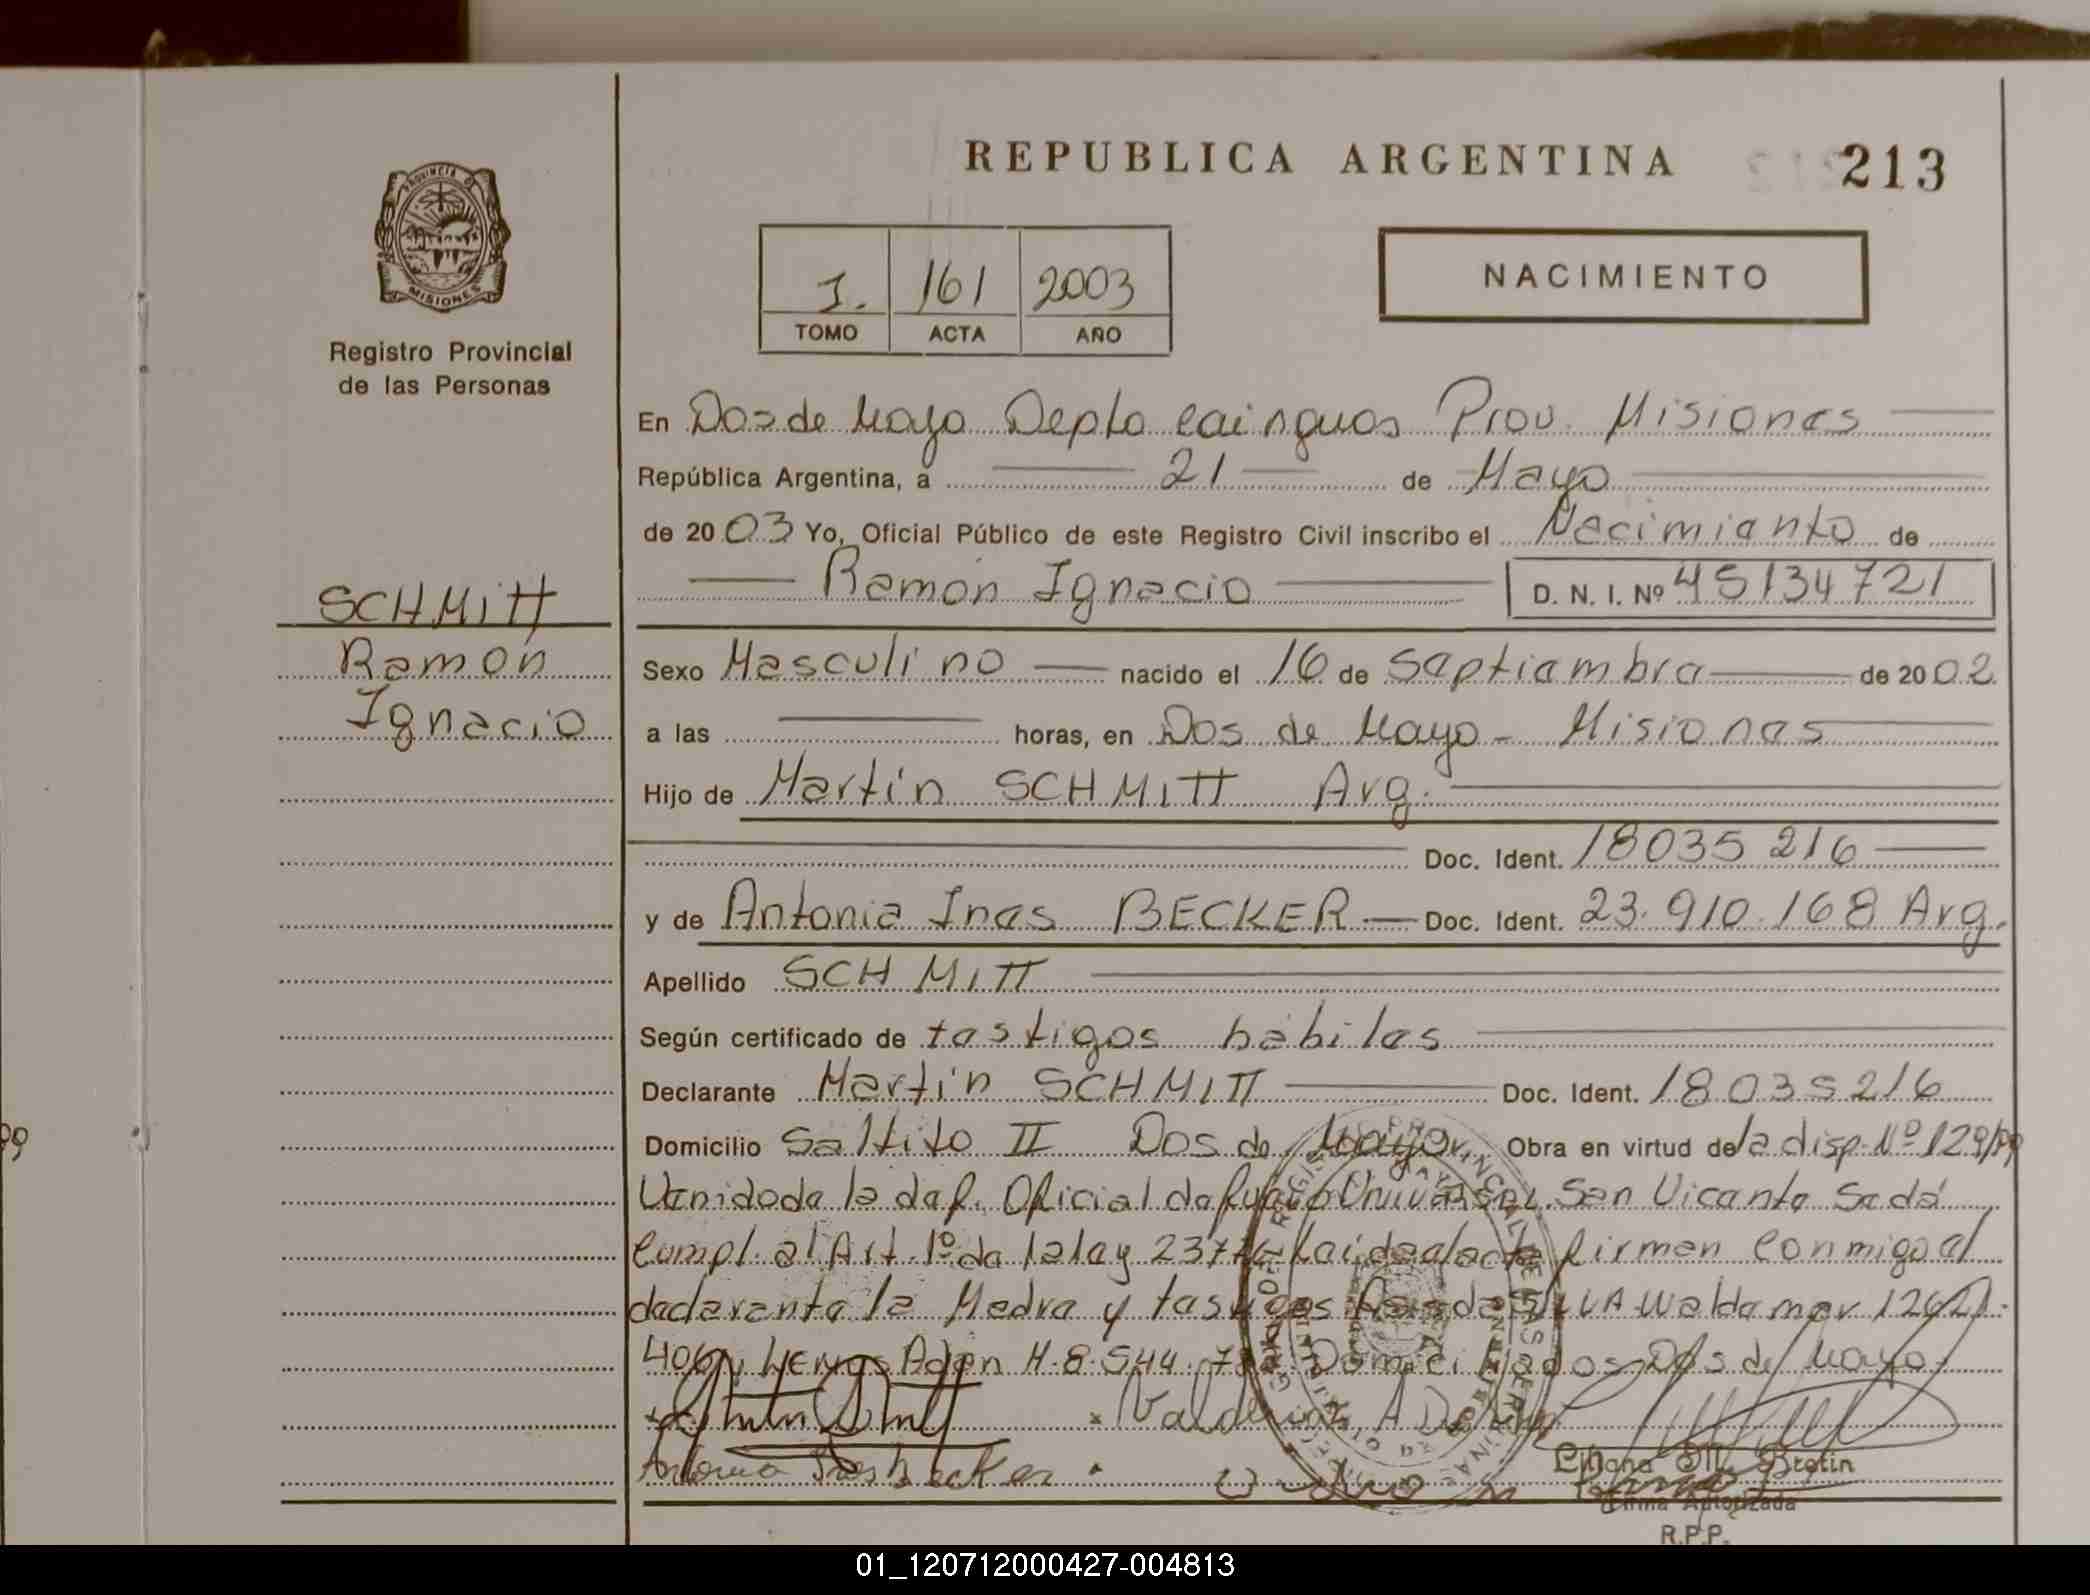 REPUBLICA ARGENTINA 213
PROVINCIA D
MISIONES
Registro Provincial
de las Personas
1. 161 2003
TOMO ACTA AÑO
NACIMIENTO
En Dos de Mayo Depto Cainguas Prov. Misiones
República Argentina, a 21 de Mayo
de 2003 Yo, Oficial Público de este Registro Civil inscribo el Nacimiento de
Ramón Ignacio D. N. I. Nº 45134721
SCHMITT
Ramón
Ignacio
Sexo Masculino nacido el 16 de Septiembre de 2002
a las horas, en Dos de Mayo - Misiones
Hijo de Martín SCHMITT Arg.
Doc. Ident. 18035216
y de Antonia Ines BECKER Doc. Ident. 23.910.168 Arg.
Apellido SCHMITT
Según certificado de testigos hábiles
Declarante Martín SCHMITT Doc. Ident. 18035216
Domicilio Saltito II Dos de Mayo Obra en virtud de la disp. Nº 129/99
Venido de la def. Oficial San Vicente Se dá
Compl. al Art. 1º de la ley firman conmigo el
declarante la Madre y testigos Waldemar
Domiciliados Dos de Mayo
Antonia Ines Becker
Liliana M. Bretin
Firma Autorizada
R.P.P.
01_120712000427-004813